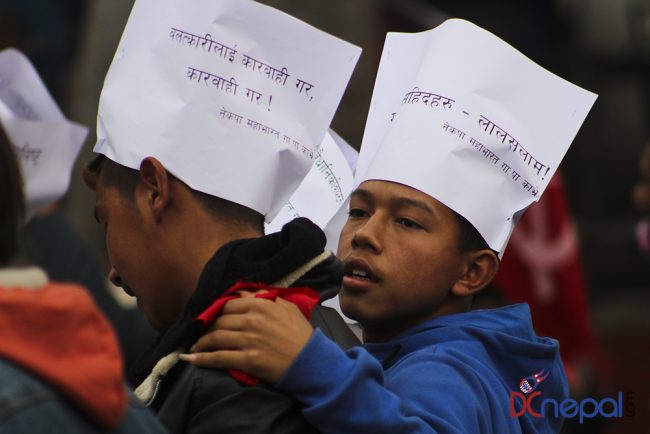 बलत्कारीलाई कारवाही गर,
कारवाही गर !
नेकपा महाभारत गा पा काभ्रे
सहिदहरु - लालसलाम!
नेकपा महाभारत गा पा काभ्रे
DCnepal.com